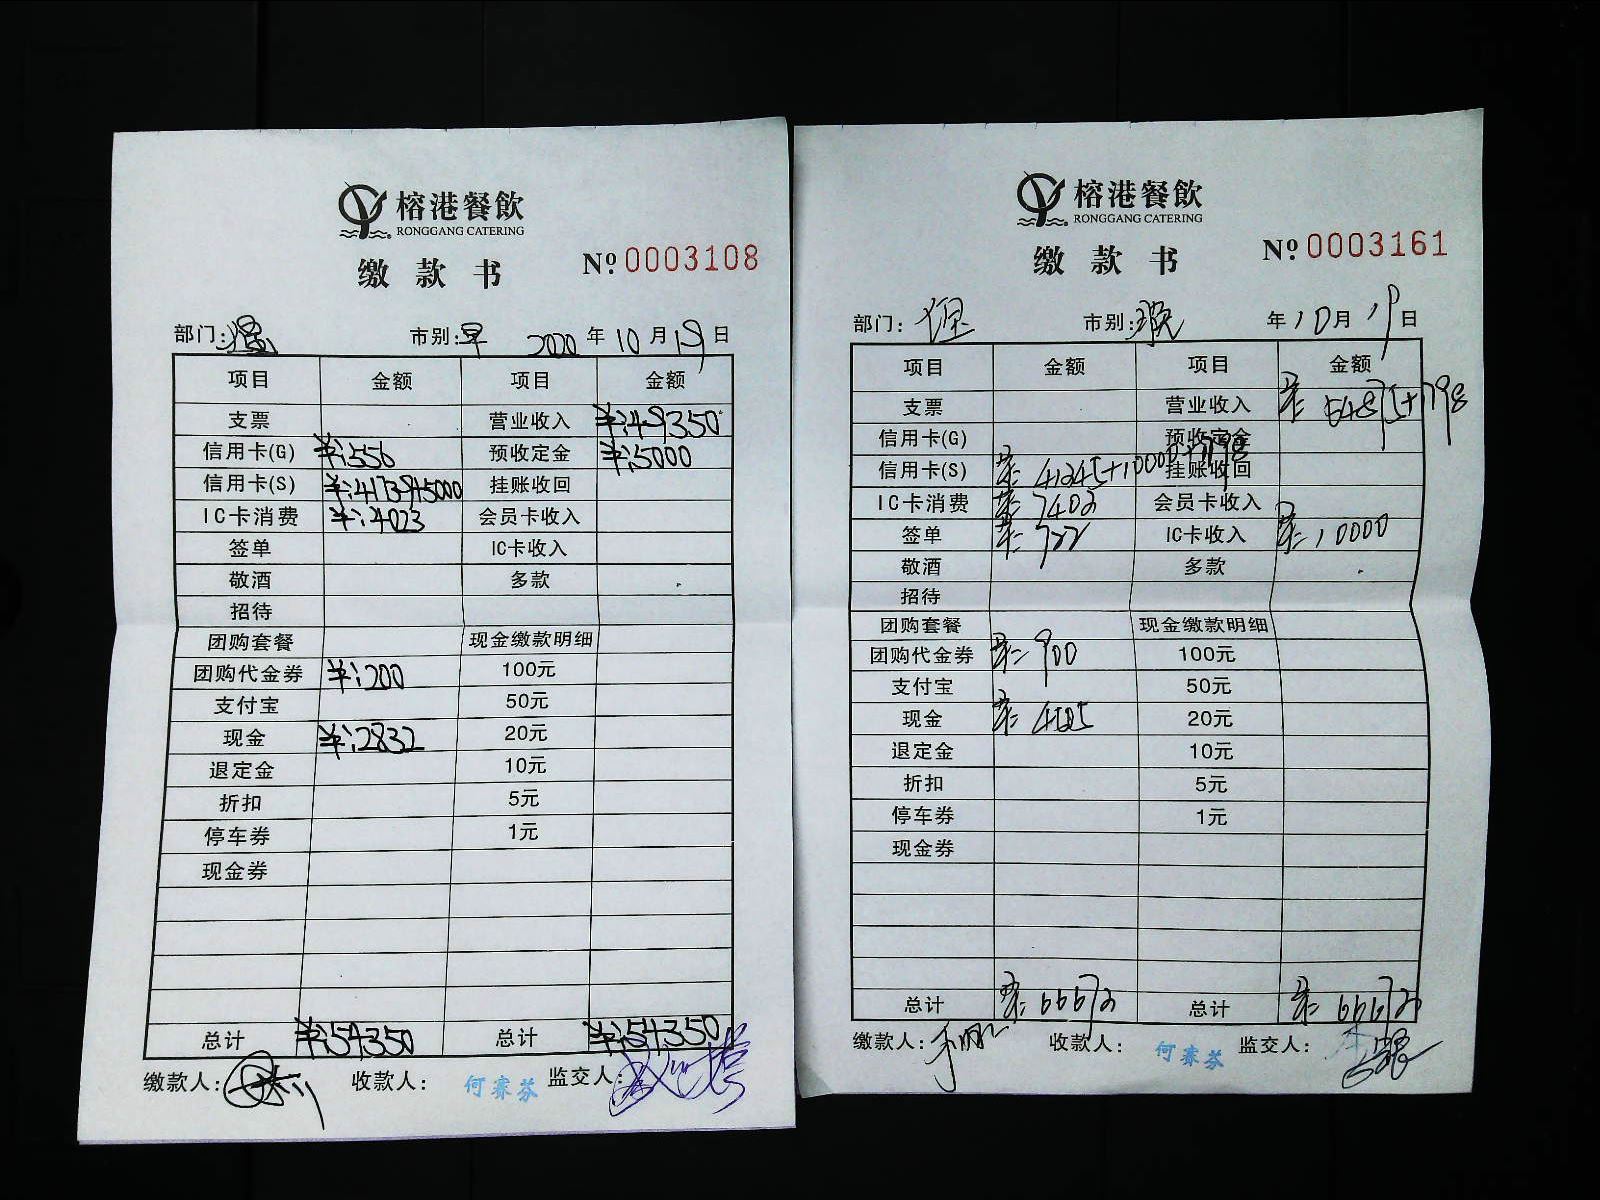 榕港餐飲
RONGGANG CATERING
缴款书
№ 0003108
部门: 市别:早 2020年10月19日
项目 金额 项目 金额
支票 营业收入 ¥:49350
信用卡(G) ¥:556 预收定金 ¥:5000
信用卡(S) ¥:41739+5000 挂账收回
IC卡消费 ¥:4023 会员卡收入
签单 IC卡收入
敬酒 多款
招待
团购套餐 现金缴款明细
团购代金券 ¥:200 100元
支付宝 50元
现金 ¥:2832 20元
退定金 10元
折扣 5元
停车券 1元
现金券
总计 ¥:54350 总计 ¥:54350
缴款人: 收款人: 何赛芬 监交人:
榕港餐飲
RONGGANG CATERING
缴款书
№ 0003161
部门: 市别:晚 年10月19日
项目 金额 项目 金额
支票 营业收入 ¥:54875+1798
信用卡(G) 预收定金
信用卡(S) ¥:41245+10000+1798 挂账收回
IC卡消费 ¥:7402 会员卡收入
签单 ¥:722 IC卡收入 ¥:10000
敬酒 多款
招待
团购套餐 现金缴款明细
团购代金券 ¥:900 100元
支付宝 50元
现金 ¥: 20元
退定金 10元
折扣 5元
停车券 1元
现金券
总计 ¥:66672 总计 ¥:66672
缴款人: 收款人: 何赛芬 监交人: